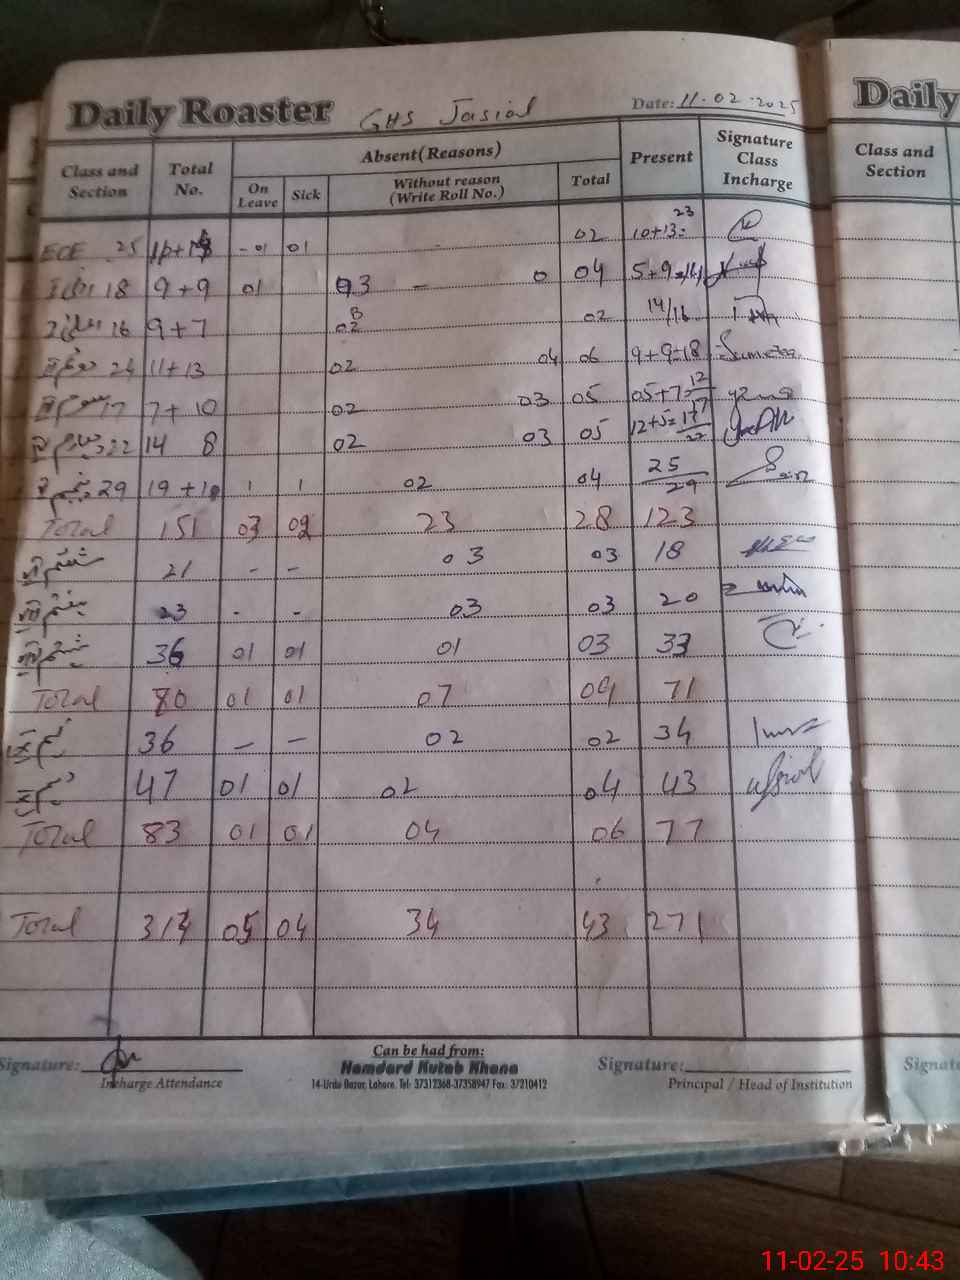 Daily Roaster GHS Jasial Date: 11.02.2025
Class and Section Total No. Absent(Reasons) On Leave Sick Without reason (Write Roll No.) Total Present Signature Class Incharge
ECE 25 - 01 01 - 02 10+13= 23
18 9+9 01 3 - 0 04 5+9=14
16 9+7 02 02 14/16
24 11+13 02 04 06 9+9=18
سوئم 17 7+10 02 03 05 05+7=12
چہارم 22 14 8 02 03 05 12+5=17/22
پنجم 29 19+10 1 1 02 04 25/29
Total 151 03 02 23 28 123
ششم 21 - - 03 03 18
ہفتم 23 - - 03 03 20
ہشتم 36 01 01 01 03 33
Total 80 01 01 07 09 71
نہم 36 - - 02 02 34
دہم 47 01 01 02 04 43
Total 83 01 01 04 06 77
Total 314 05 04 34 43 271
Signature: Incharge Attendance
Can be had from:
Hamdard Kutab Khana
14-Urdu Bazar, Lahore. Tel: 37312368-37358947 Fax: 37210412
Signature: Principal / Head of Institution
Daily
Class and Section
Signat
11-02-25 10:43